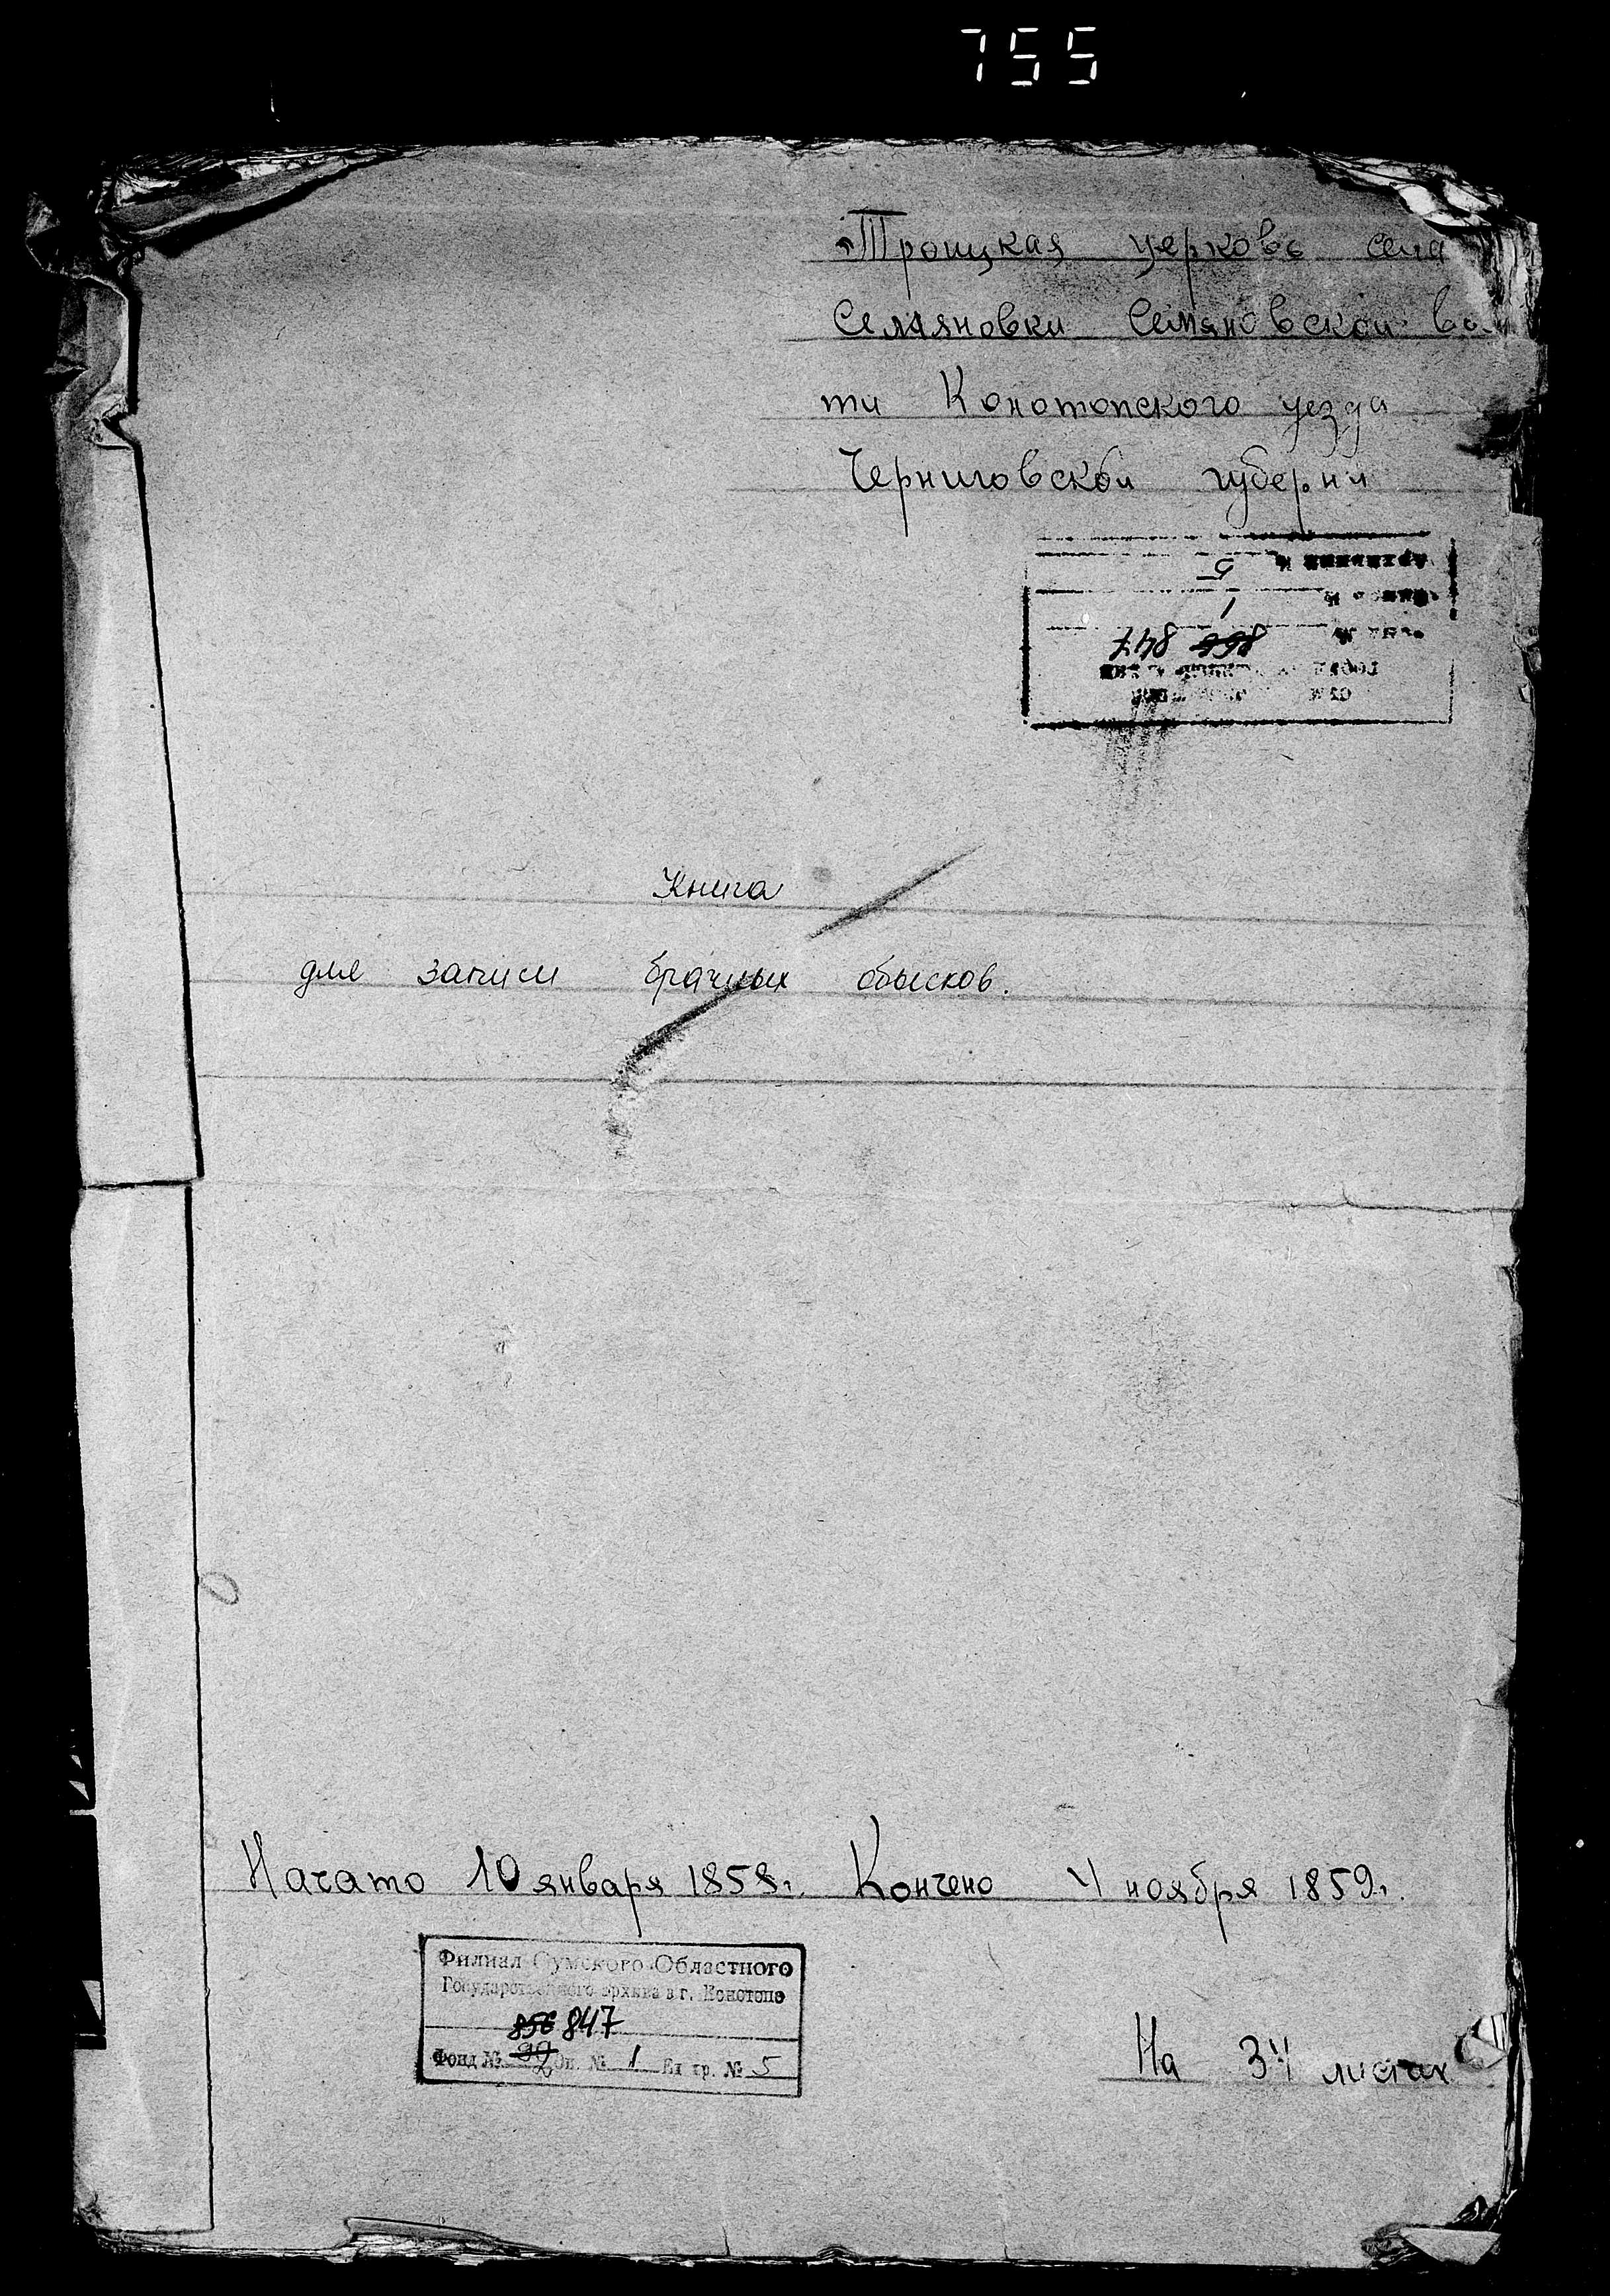 755
Троицкая церковь села
Семяновки Семяновской вол
ти Конотопского уезда
Черниговской губернии
5
1
856 847
Книга
для записи брачных обысков.
Начато 10 января 1858г. Кончено 4 ноября 1859г.
Филиал Сумского Областного
Государственного архива в г. Конотопе
856 847
Фонд № 92 Оп. № 1 Ед хр. № 5
На 34 листах